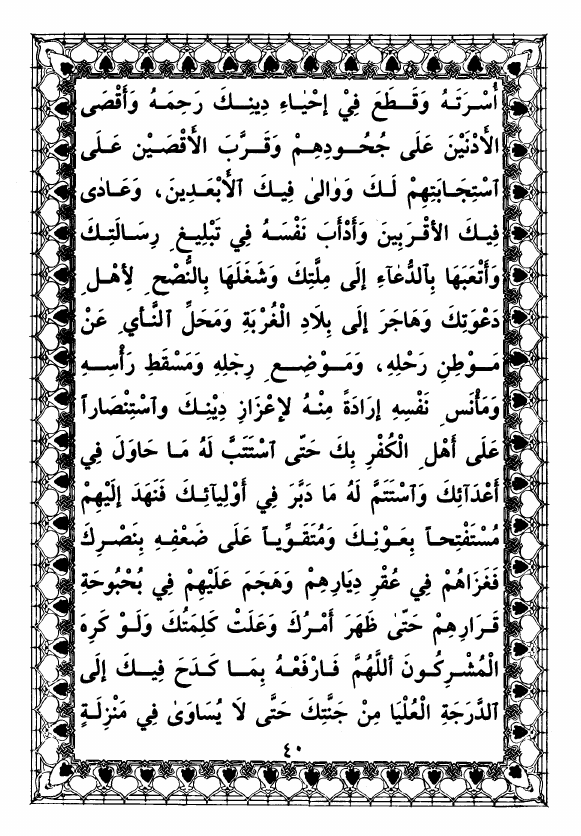 أُسْرَتَهُ وَقَطَعَ فِيْ إحْيَاءِ دِينِكَ رَحِمَهُ وَأَقْصَى
الأَدْنَيْنَ عَلَى جُحُودِهِمْ وَقَرَّبَ الأَقْصَيْنَ عَلَى
ٱسْتِجَابَتِهِمْ لَكَ وَوَالىٰ فِيكَ ٱلأَبْعَدِينَ، وَعَادٰى
فِيكَ الأقْرَبِينَ وَأَدْأَبَ نَفْسَهُ فِي تَبْلِيغِ رِسَالَتِكَ
وَأَتْعَبَهَا بِٱلدُّعَآءِ إلَى مِلَّتِكَ وَشَغَلَهَا بِالنُّصْحِ لِأهْلِ
دَعْوَتِكَ وَهَاجَرَ إلَى بِلَادِ الْغُرْبَةِ وَمَحَلِّ ٱلنَّأيِ عَنْ
مَوْطِنِ رَحْلِهِ، وَمَوْضِعِ رِجْلِهِ وَمَسْقَطِ رَأْسِهِ
وَمَأْنَسِ نَفْسِهِ إرَادَةً مِنْهُ لإعْزَازِ دِيْنِكَ وَٱسْتِنْصَاراً
عَلَى أَهْلِ الْكُفْرِ بِكَ حَتّى ٱسْتَتَبَّ لَهُ مَا حَاوَلَ فِي
أَعْدَآئِكَ وَٱسْتَتَمَّ لَهُ مَا دَبَّرَ فِي أَوْلِيآئِكَ فَنَهَدَ إلَيْهِمْ
مُسْتَفْتِحاً بِعَوْنِكَ وَمُتَقَوِّياً عَلَى ضَعْفِهِ بِنَصْرِكَ
فَغَزَاهُمْ فِي عُقْرِ دِيَارِهِمْ وَهَجَمَ عَلَيْهِمْ فِي بُحْبُوحَةِ
قَرَارِهِمْ حَتّىٰ ظَهَرَ أَمْرُكَ وَعَلَتْ كَلِمَتُكَ وَلَوْ كَرِهَ
الْمُشْرِكُونَ أللَّهُمَّ فَارْفَعْهُ بِمَا كَدَحَ فِيكَ إلَى
ٱلدَّرَجَةِ الْعُلْيَا مِنْ جَنَّتِكَ حَتَّى لَا يُسَاوَىٰ فِي مَنْزِلَةٍ
٤٠